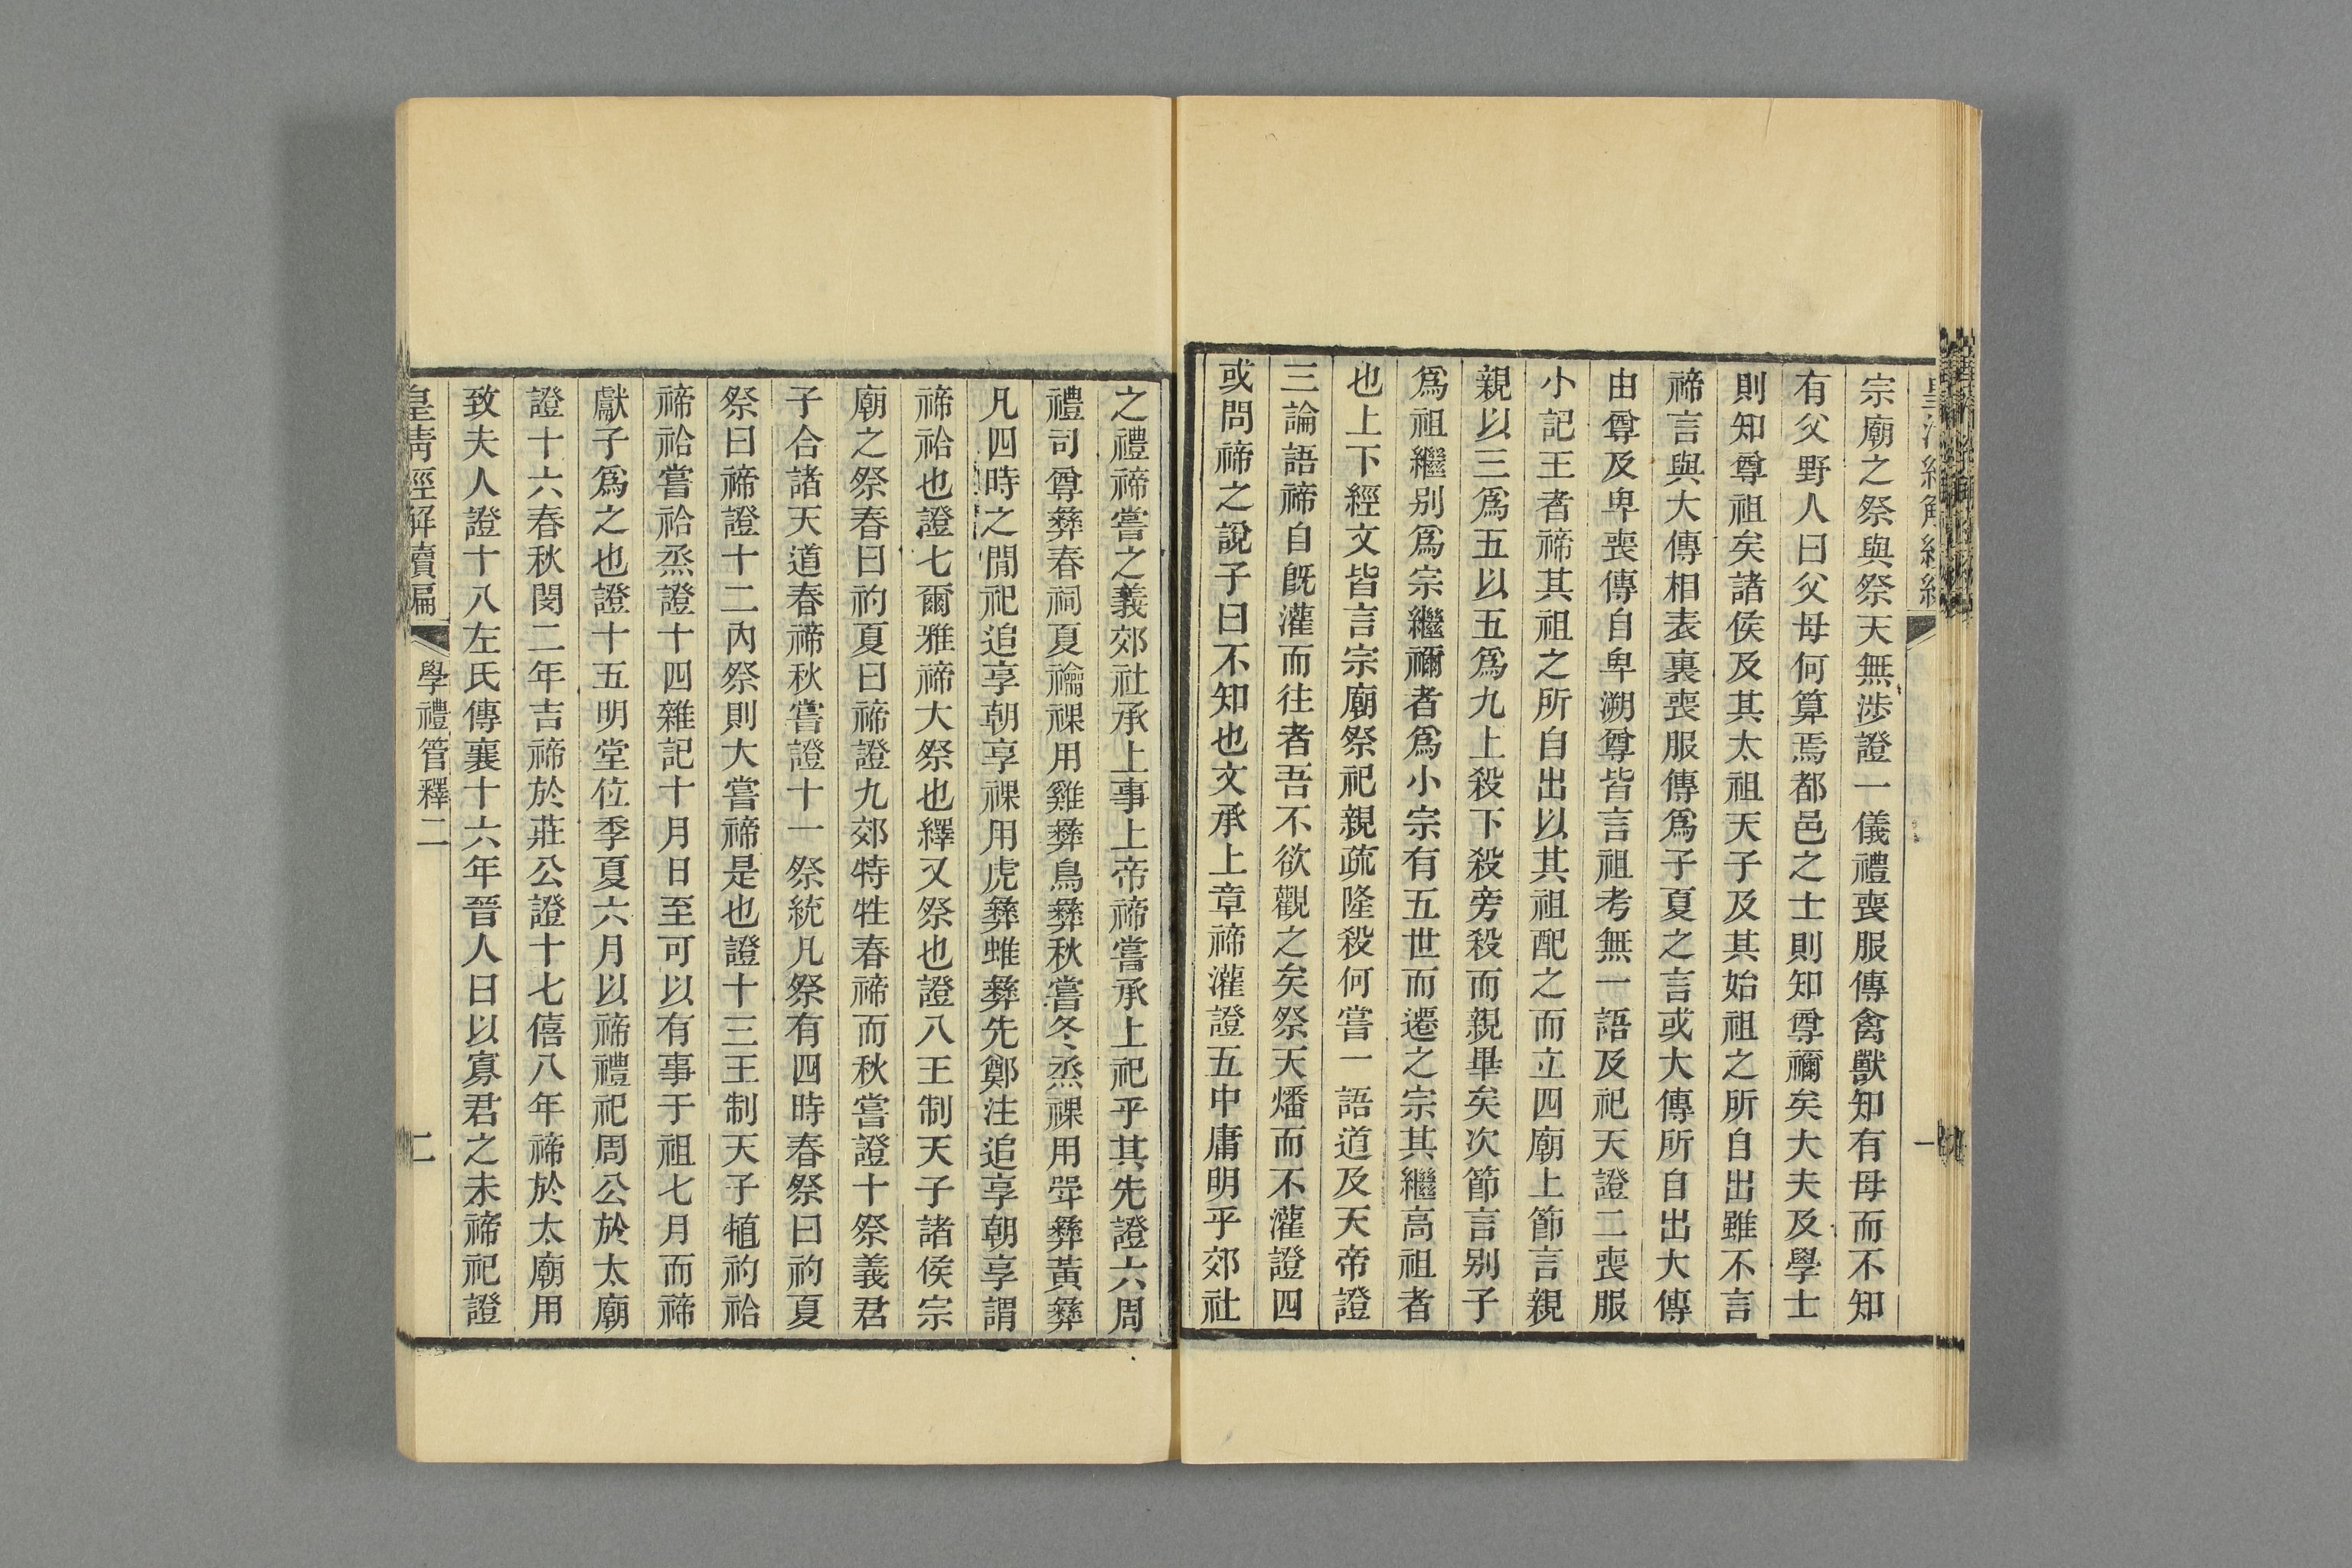 宗廟之祭與祭天無涉證一儀禮喪服傳禽獸知有母而不知
有父野人曰父母何算焉都邑之士則知尊禰矣大夫及學士
則知尊祖矣諸侯及其太祖天子及其始祖之所自出雖不言
禘言與大傳相表裏喪服傳爲子夏之言或大傳所自出大傳
由尊及卑喪傳自卑溯尊皆言祖考無一語及祀天證二喪服
小記王者禘其祖之所自出以其祖配之而立四廟上節言親
親以三爲五以五爲九上殺下殺旁殺而親畢矣次節言别子
爲祖繼别爲宗繼禰者爲小宗有五世而遷之宗其繼高祖者
也上下經文皆言宗廟祭祀親疏隆殺何嘗一語道及天帝證
三論語禘自既灌而往者吾不欲觀之矣祭天燔而不灌證四
或問禘之說子曰不知也文承上章禘灌證五中庸明乎郊社
之禮禘嘗之義郊社承上事上帝禘嘗承上祀乎其先證六周
禮司尊彝春祠夏禴祼用雞彝鳥彝秋嘗冬烝祼用斝彝黃彝
凡四時之閒祀追享朝享祼用虎彝蜼彝先鄭注追享朝享謂
禘祫也證七爾雅禘大祭也繹又祭也證八王制天子諸侯宗
廟之祭春曰礿夏曰禘證九郊特牲春禘而秋嘗證十祭義君
子合諸天道春禘秋嘗證十一祭統凡祭有四時春祭曰礿夏
祭曰禘證十二內祭則大嘗禘是也證十三王制天子犆礿祫
禘祫嘗祫烝證十四雜記十月日至可以有事于祖七月而禘
獻子爲之也證十五明堂位季夏六月以禘禮祀周公於太廟
證十六春秋閔二年吉禘於莊公證十七僖八年禘於太廟用
致夫人證十八左氏傳襄十六年晉人曰以寡君之未禘祀證
皇清經解續編
學禮管釋二
二